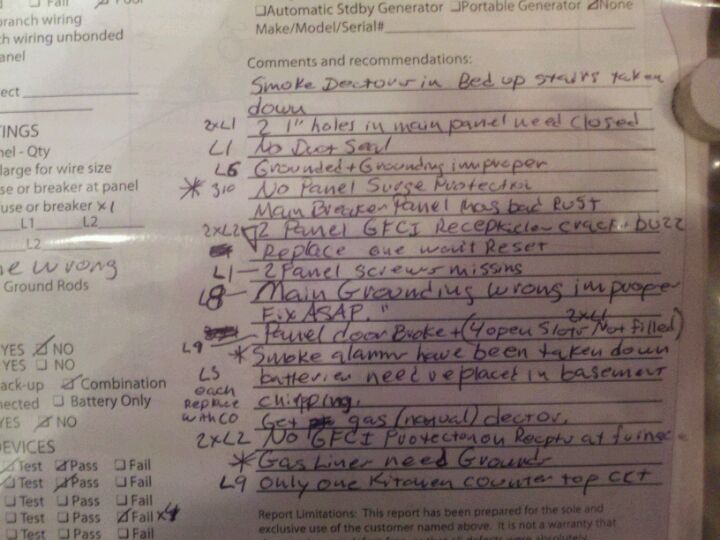 Fail
Poor
branch wiring
ch wiring unbonded
anel
ect
INGS
nel - Qty
large for wire size
se or breaker at panel
fuse or breaker x1
L1 L2
L2
ne wrong
Ground Rods
YES NO
YES NO
ack-up Combination
nected Battery Only
YES NO
DEVICES
Test Pass Fail
Test Pass Fail
Test Pass Fail
Test Pass Fail x4
Test Pass Fail
Automatic Stdby Generator Portable Generator None
Make/Model/Serial#
Comments and recommendations:
Smoke Dectors in Bed up stairs taken
down
2xL1 2 1" holes in main panel need closed
L1 No Duct Seal
L6 Grounded + Grounding improper
* 310 No Panel Surge Protection
Main Breaker Panel has bad RUST
2xL2 2 Panel GFCI Recepticles crack + buzz
Replace one won't Reset
L1 - 2 Panel screws missing
L8 - Main Grounding wrong improper
Fix ASAP. " 2xL1
L9 Panel door Broke + (4 open Slots Not filled)
* Smoke alarms have been taken down
L5 batteries need replaced in basement
each
Replace chirping.
with CO Get gas (natual) dector.
2xL2 No GFCI Protecton on Recpts at furnace
* Gas Liner need Grounds
L9 only one Kitchen counter top CCT
Report Limitations: This report has been prepared for the sole and
exclusive use of the customer named above. It is not a warranty that